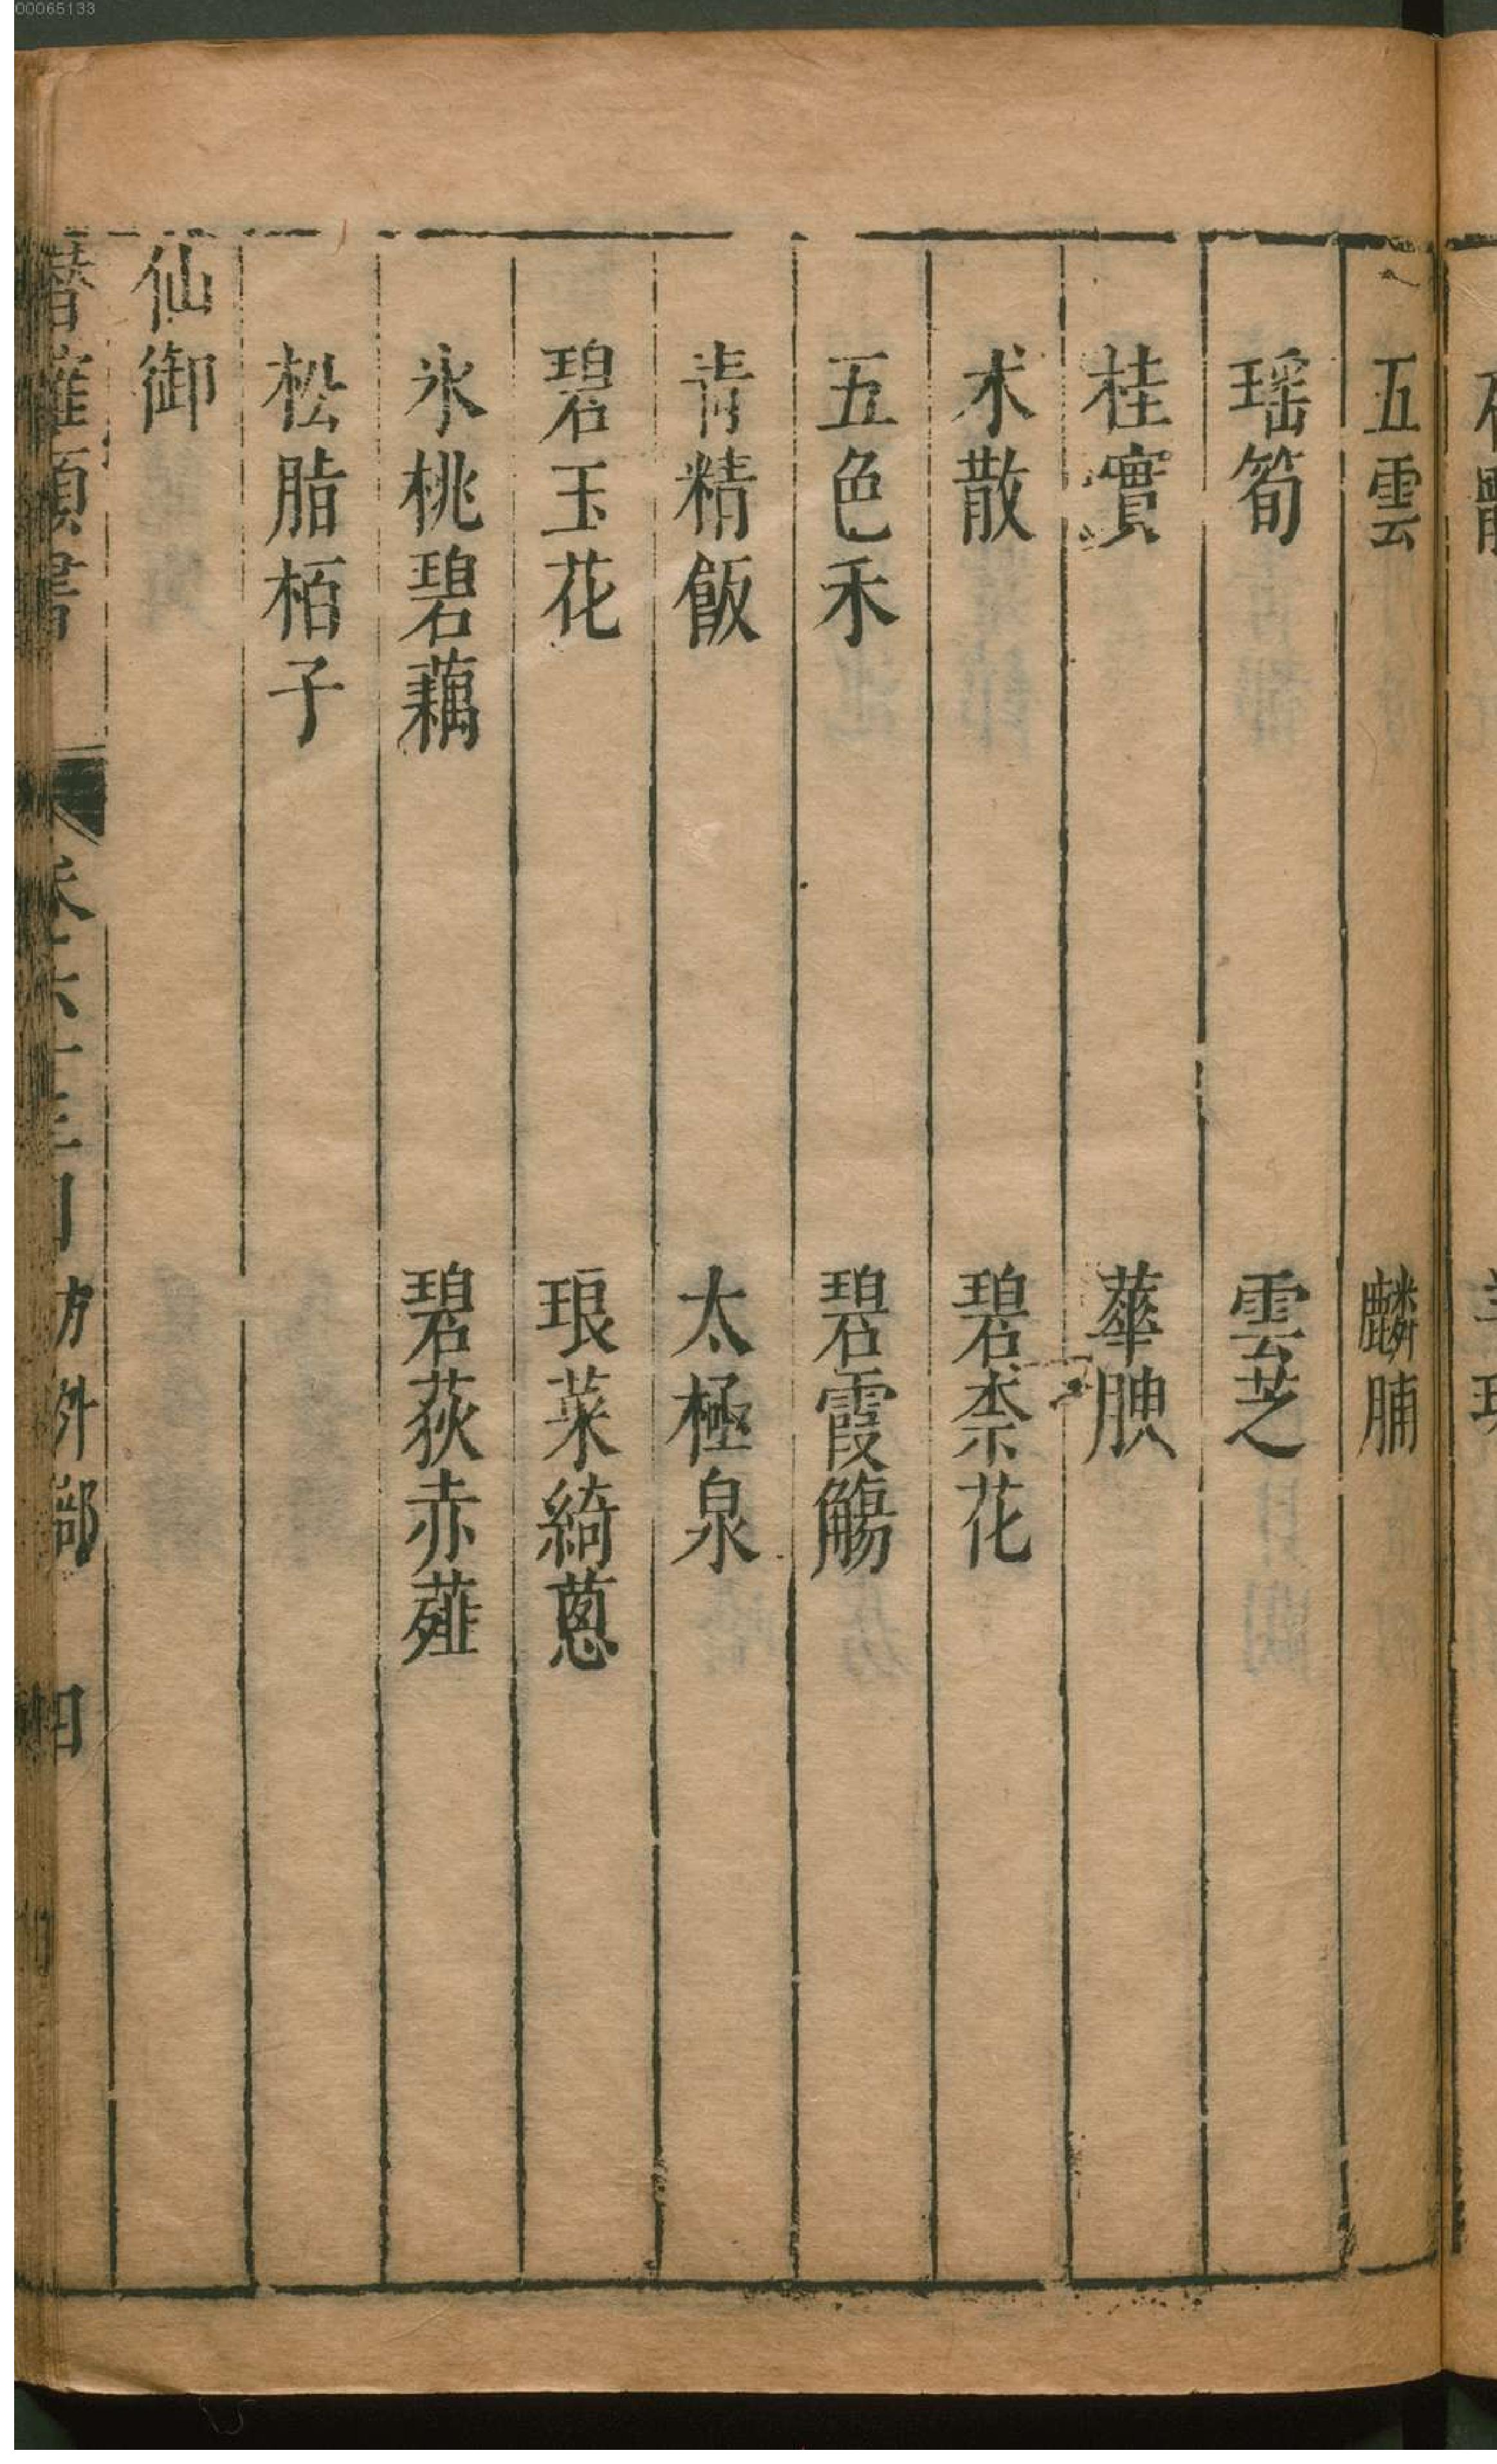 00065133
五雲 麟脯
瑶筍 雲芝
桂實 華腴
术散 碧柰花
五色禾 碧霞觴
青精飯 太極泉
碧玉花 琅菜綺蔥
氷桃碧藕 碧荻赤薤
松脂栢子
仙御
類書 卷六十三目 方外部 四